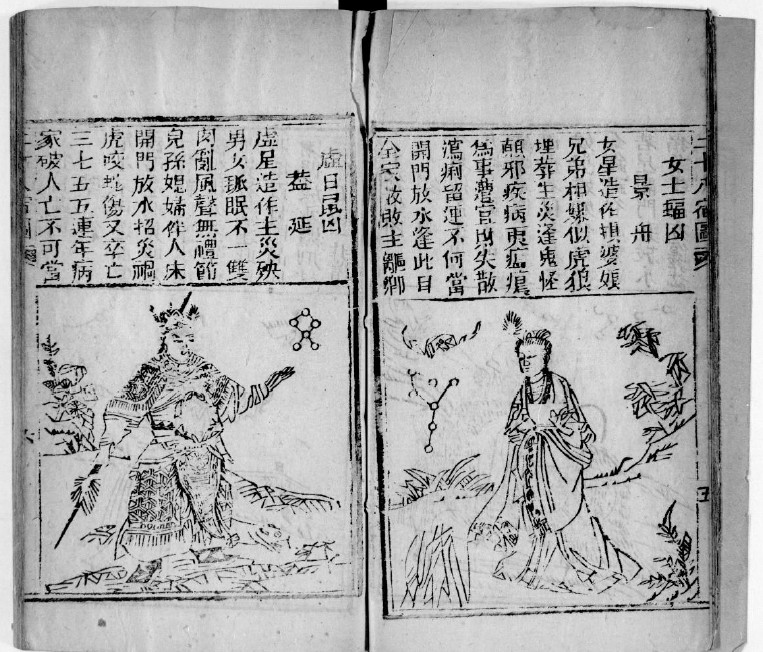 二十八宿圖
女土蝠凶
景丹
女星造作損婆娘
兄弟相嫌似虎狼
埋葬生災逢鬼怪
顛邪疾病更瘟
為事遭官財失散
瀉痢留連不何當
開門放水逢此日
全家散敗主離鄉
五
虛日鼠凶
蓋延
虛星造作主災殃
男女孤眠不一雙
內亂風聲無禮節
兒孫媳婦伴人床
開門放水招災禍
虎咬蛇傷又卒亡
三七五五連年病
家破人亡不可當
二十八宿圖
六